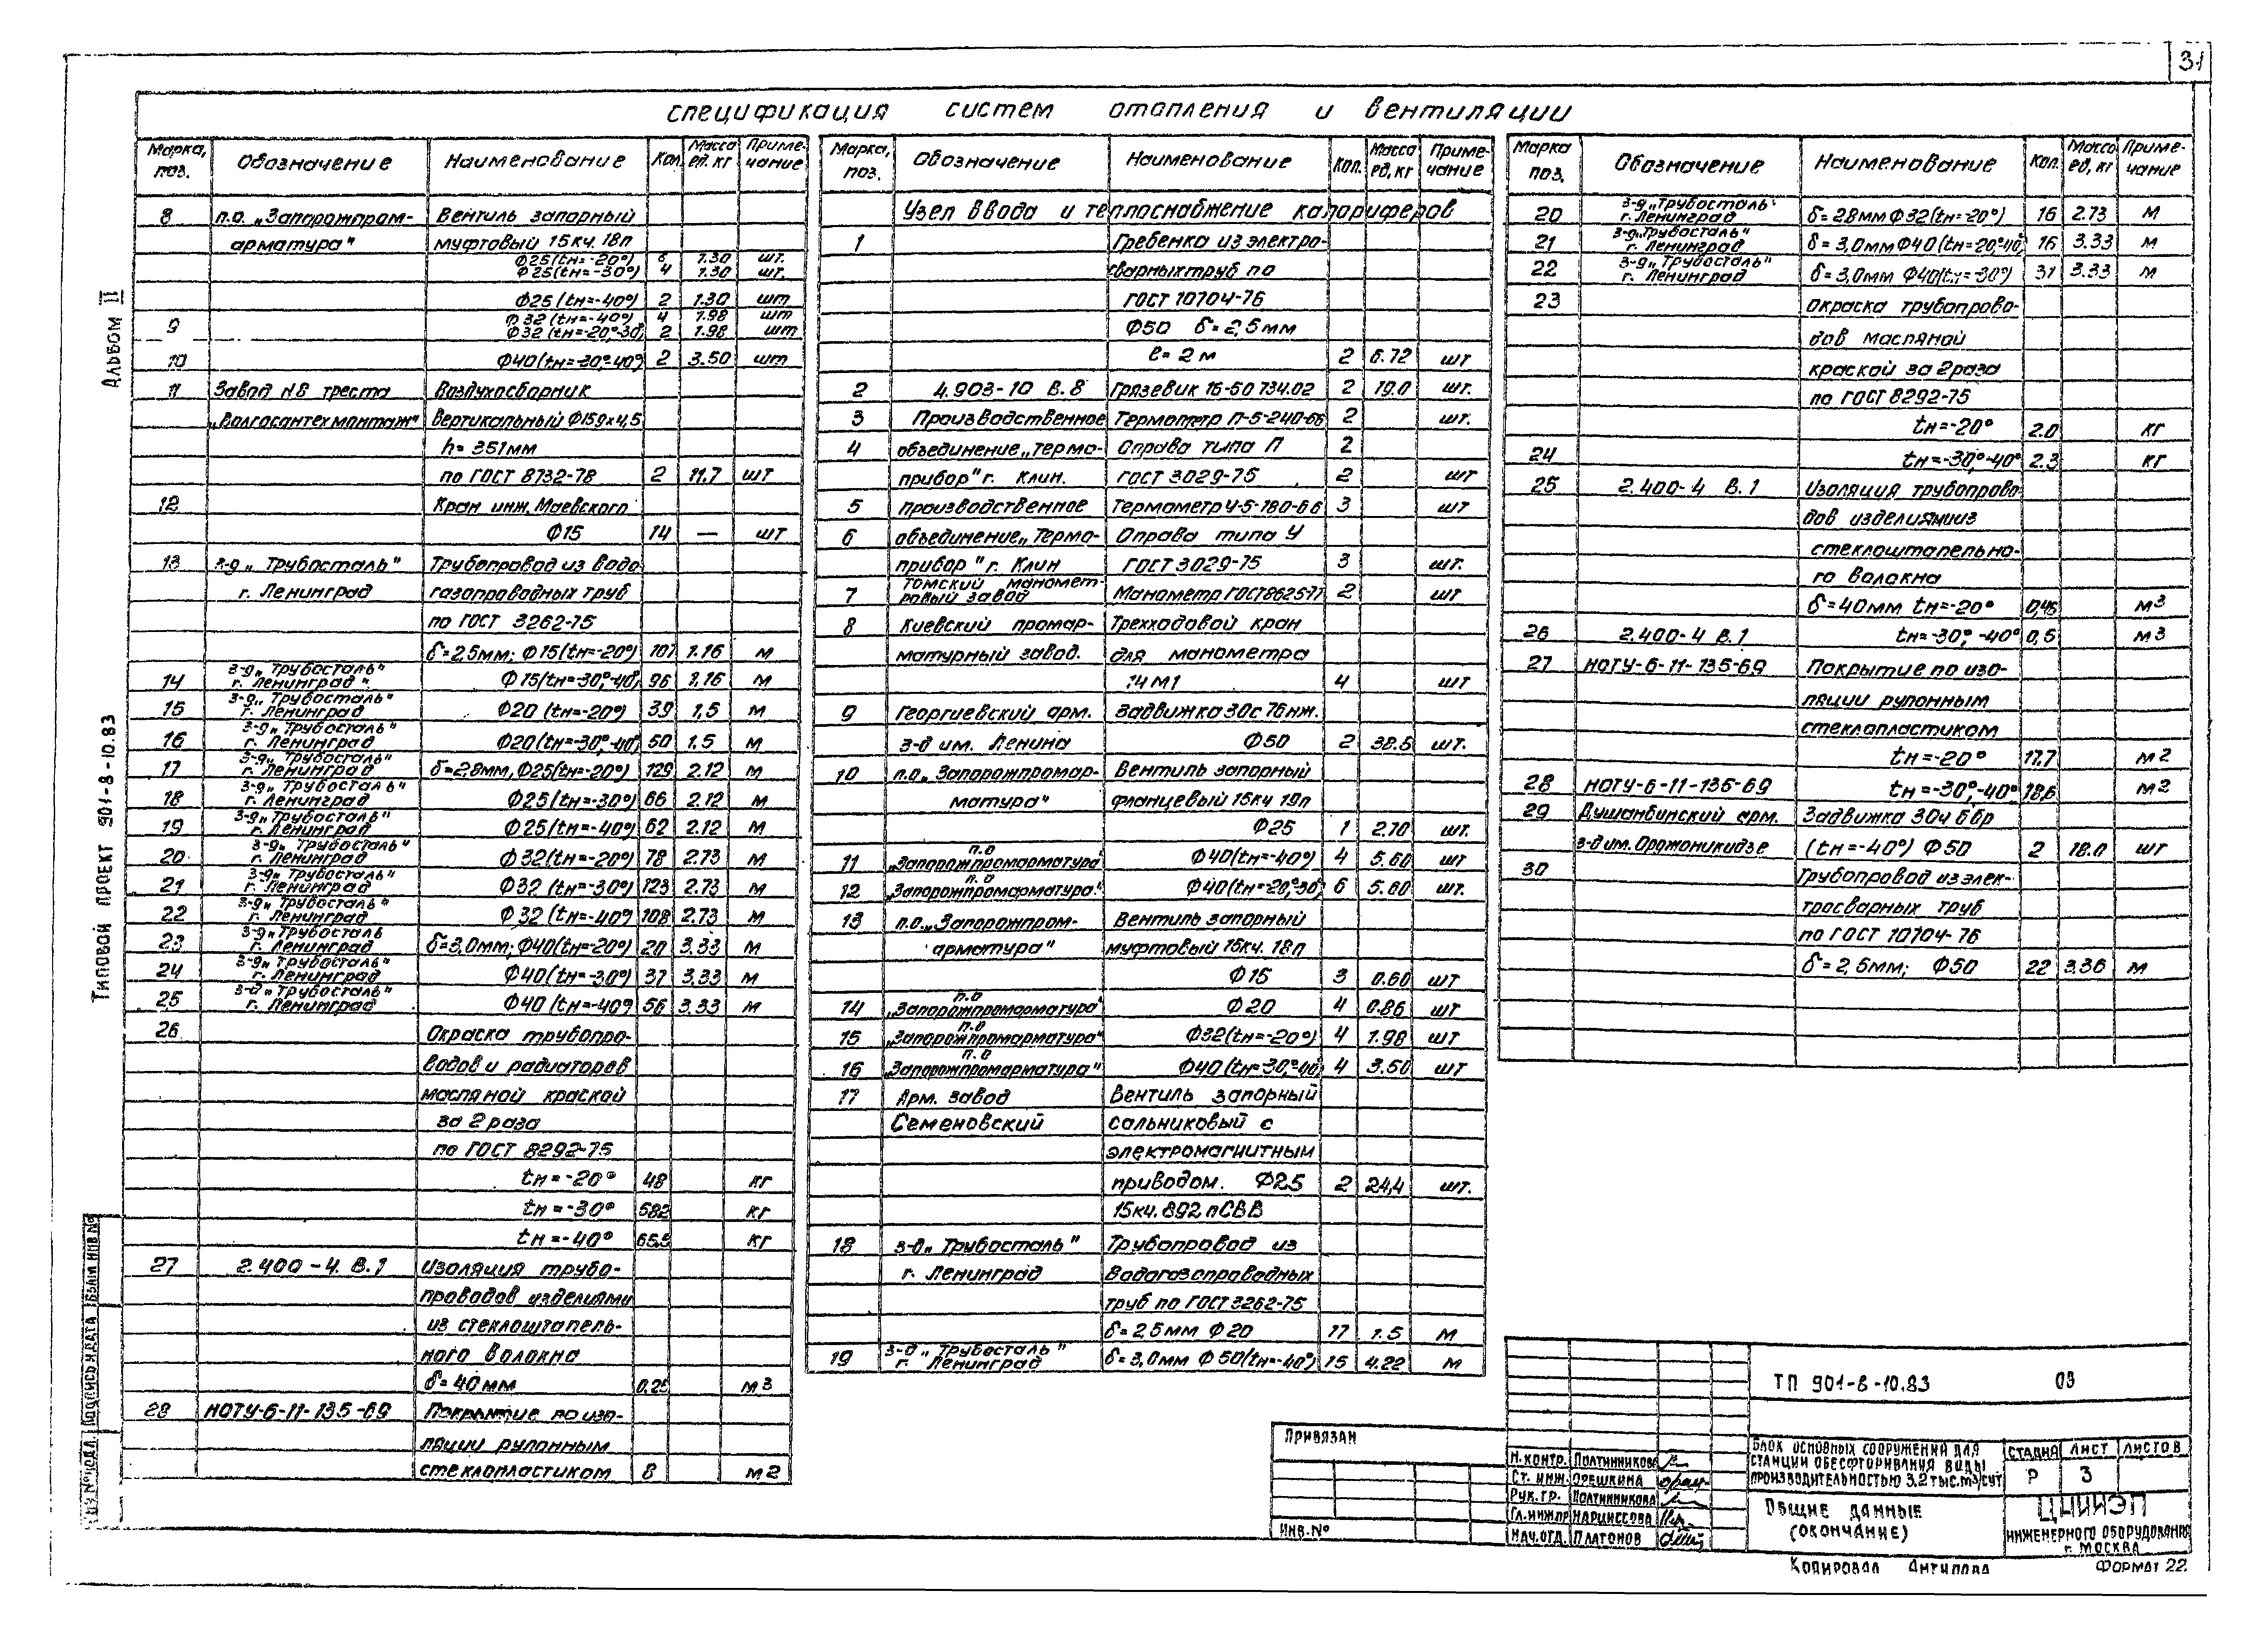 31
спецификация систем отопления и вентиляции
Марка, поз. Обозначение Наименование Кол. Масса ед. кг Приме-чание
8 п.о. „Запорожпром- Вентиль запорный
арматура" муфтовый 15кч. 18п
Ф25(tн=-20°) 6 1.30 шт.
Ф25(tн=-30°) 4 1.30 шт.
Ф25(tн=-40°) 2 1.30 шт
Ф32(tн=-40°) 4 1.98 шт
9 Ф32(tн=-20°,-30°) 2 1.98 шт
10 Ф40(tн=-30°-40°) 2 3.50 шт
11 Завод №8 треста Воздухосборник
„Волгосантехмонтаж" Вертикальный Ф159х4,5
h=351мм
по ГОСТ 8732-78 2 11,7 шт
12 Кран инж. Маевского
Ф15 14 — шт
13 з-д „Трубосталь" Трубопровод из водо
г. Ленинград газопроводных труб
по ГОСТ 3262-75
δ=2,5мм; Ф15(tн=-20°) 107 1.16 м
14 з-д „Трубосталь" г. Ленинград" Ф15(tн=-30°,-40°) 96 1.16 м
15 з-д „Трубосталь" г. Ленинград Ф20(tн=-20°) 39 1,5 м
16 з-д „Трубосталь" г. Ленинград Ф20(tн=-30°,-40°) 50 1.5 м
17 з-д „Трубосталь" г. Ленинград δ=2,8мм, Ф25(tн=-20°) 129 2.12 м
18 з-д „Трубосталь" г. Ленинград Ф25(tн=-30°) 66 2.12 м
19 з-д „Трубосталь" г. Ленинград Ф25(tн=-40°) 62 2.12 м
20 з-д „Трубосталь" г. Ленинград Ф32(tн=-20°) 78 2.73 м
21 з-д „Трубосталь" г. Ленинград Ф32(tн=-30°) 123 2.73 м
22 з-д „Трубосталь" г. Ленинград Ф32(tн=-40°) 108 2.73 м
23 з-д „Трубосталь г. Ленинград δ=3,0мм; Ф40(tн=-20°) 20 3.33 м
24 з-д „Трубосталь" г. Ленинград Ф40(tн=-30°) 37 3,33 м
25 з-д „Трубосталь" г. Ленинград Ф40(tн=-40°) 56 3.33 м
26 Окраска трубопро-
водов и радиаторов
масляной краской
за 2 раза
по ГОСТ 8292-75
tн=-20° 48 кг
tн=-30° 58,2 кг
tн=-40° 65,5 кг
27 2.400-4. В.1 Изоляция трубо-
проводов изделиями
из стеклоштапель-
ного волокна
δ=40мм 0,25 м3
28 НОТУ-6-11-135-69 Покрытие по изо-
ляции рулонным
стеклопластиком 8 м2
Марка, поз. Обозначение Наименование Кол. Масса ед, кг Приме-чание
Узел ввода и теплоснабжение калориферов
1 Гребенка из электро-
сварных труб по
ГОСТ 10704-76
Ф50 δ=2,5мм
ℓ=2м 2 6.72 шт
2 4.903-10 В.8 Грязевик 16-50 ТЗ4.02 2 19.0 шт.
3 Производственное Термометр П-5-240-66 2 шт.
4 объединение „Термо- Оправа типа П 2
прибор" г. Клин. ГОСТ 3029-75 2 шт
5 производственное Термометр У-5-180-66 3 шт
6 объединение „Термо- Оправа типа У
прибор" г. Клин ГОСТ 3029-75 3 шт.
7 Томский маномет-ровый завод Манометр ГОСТ8625-77 2 шт
8 Киевский промар- Трехходовой кран
матурный завод. для манометра
14М1 4 шт
9 Георгиевский арм. Задвижка 30с 76нж.
з-д им. Ленина Ф50 2 38.5 шт.
10 п.о. „Запорожпромар- Вентиль запорный
матура" фланцевый 15кч 19п
Ф25 1 2.70 шт.
11 п.о „Запорожпромарматура" Ф40(tн=-40°) 4 5.60 шт
12 п.о „Запорожпромарматура." Ф40(tн=-20°,-30°) 6 5.60 шт.
13 п.о. „Запорожпром- Вентиль запорный
арматура" муфтовый 15кч. 18п
Ф15 3 0.60 шт
14 п.о „Запорожпромарматура" Ф20 4 0.86 шт
15 п.о „Запорожпромарматура" Ф32(tн=-20°) 4 1.98 шт
16 п.о „Запорожпромарматура" Ф40(tн=-30°,-40°) 4 3.50 шт
17 Арм. завод Вентиль запорный
Семеновский сальниковый с
электромагнитным
приводом. Ф25 2 24,4 шт.
15кч. 892 пСВВ
18 з-д „Трубосталь" Трубопровод из
г. Ленинград Водогазопроводных
труб по ГОСТ 3262-75
δ=2,5мм Ф20 17 1.5 м
19 з-д „Трубосталь" г. Ленинград δ=3,0мм Ф50(tн=-40°) 15 4.22 м
Марка поз. Обозначение Наименование Кол. Масса ед, кг Приме-чание
20 з-д „Трубосталь" г. Ленинград δ=2,8мм Ф32(tн=-20°) 16 2.73 м
21 з-д „Трубосталь" г. Ленинград δ=3,0мм Ф40(tн=-20°,-40°) 16 3.33 м
22 з-д „Трубосталь" г. Ленинград δ=3,0мм Ф40(tн=-30°) 31 3.33 м
23 Окраска трубопрово-
дов масляной
краской за 2 раза
по ГОСТ 8292-75
tн=-20° 2.0 кг
24 tн=-30°,-40° 2.3 кг
25 2.400-4 В.1 Изоляция трубопрово
дов изделиями из
стеклоштапельно-
го волокна
δ=40мм tн=-20° 0,45 м3
26 2.400-4 В.1 tн=-30°,-40° 0,5 м3
27 НОТУ-6-11-135-69 Покрытие по изо-
ляции рулонным
стеклопластиком
tн=-20° 17,7 м2
28 НОТУ-6-11-135-69 tн=-30°,-40° 18,6 м2
29 Душанбинский арм. Задвижка 30ч 6бр
з-д им. Орджоникидзе (tн=-40°) Ф50 2 18.0 шт
30 Трубопровод из элек-
тросварных труб
по ГОСТ 10704-76
δ=2,5мм; Ф50 22 3.36 м
Альбом II
Типовой проект 901-8-10.83
Взам. инв №
Подпись и дата
Инв.№ подл.
Привязан
Инв.№
ТП 901-8-10.83 ОВ
Н.контр. Полтинникова
Ст. инж. Орешкина
Рук.гр. Полтинникова
Гл.инж.пр Нарциссова
Нач.отд. Платонов
Блок основных сооружений для
станции обесфторивания воды
производительностью 3.2 тыс.м3/сут
Стадия Лист Листов
Р 3
Общие данные
(окончание)
ЦНИИЭП
инженерного оборудования
г. Москва
Копировал Антипова Формат 22.